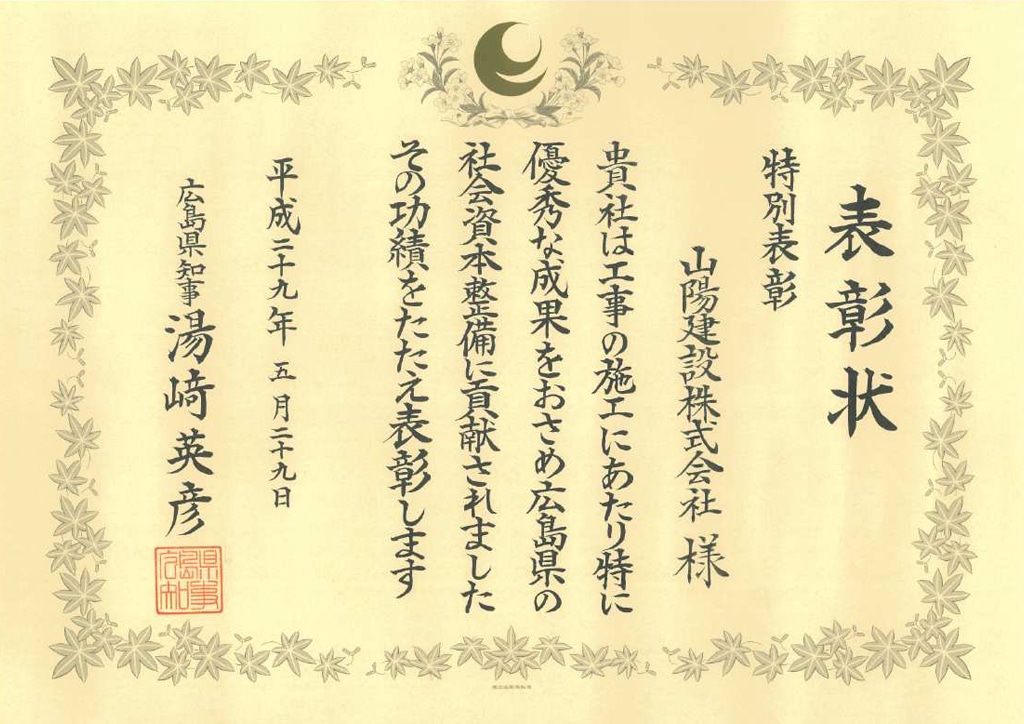 表彰状
特別表彰
山陽建設株式会社 様
貴社は工事の施工にあたり特に
優秀な成果をおさめ広島県の
社会資本整備に貢献されました
その功績をたたえ表彰します
平成二十九年 五月二十九日
広島県知事 湯﨑英彦